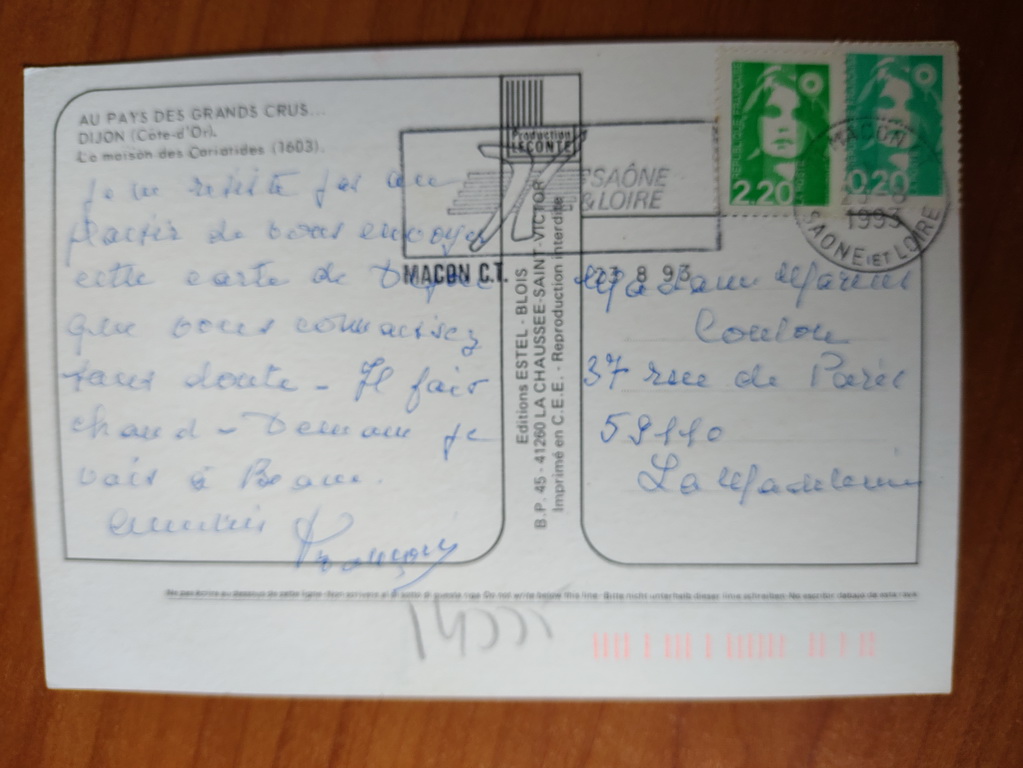 AU PAYS DES GRANDS CRUS...
DIJON (Côte-d'Or).
La maison des Cariatides (1603).
Je ne résiste pas au
plaisir de vous envoyer
cette carte de Dijon
que vous connaissez
sans doute - Il fait
chaud - Demain je
vais à Beaune.
Amitiés
Production
LECONTE
SAÔNE
& LOIRE
MACON C.T.
23 8 93
2.20
0.20
MACON
1993
SAONE (ET LOIRE)
Editions ESTEL - BLOIS
B.P. 45 - 41260 LA CHAUSSEE-SAINT-VICTOR
Imprimé en C.E.E. - Reproduction interdite
Madame
Coulon
37 rue de Paris
59110
La Madeleine
Ne pas écrire au-dessous de cette ligne Non scrivere al di sotto di questa riga Do not write below this line Bitte nicht unterhalb dieser linie schreiben No escribir debajo de esta raya